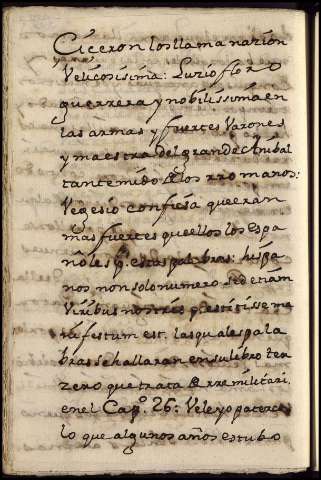 Ciceron los llama nazion
Velicosisima: Luzio floro
guerrera y nobilissima en
las armas y fuertes Varones
y maestra del grande Anibal
tan temido de los rromanos:
Vegesio confiesa que eran
mas fuertes que ellos los espa
ñoles q. estas palabras: hispa
nos non solo numero sed etiam
Viribus nostris prestitisse ma
nifestum est. las quales pala
bras se hallaran en su libro ter
zero que trata de rre militari.
en el Cap.º 26: Veleyo paterco
lo que algunos años estubo